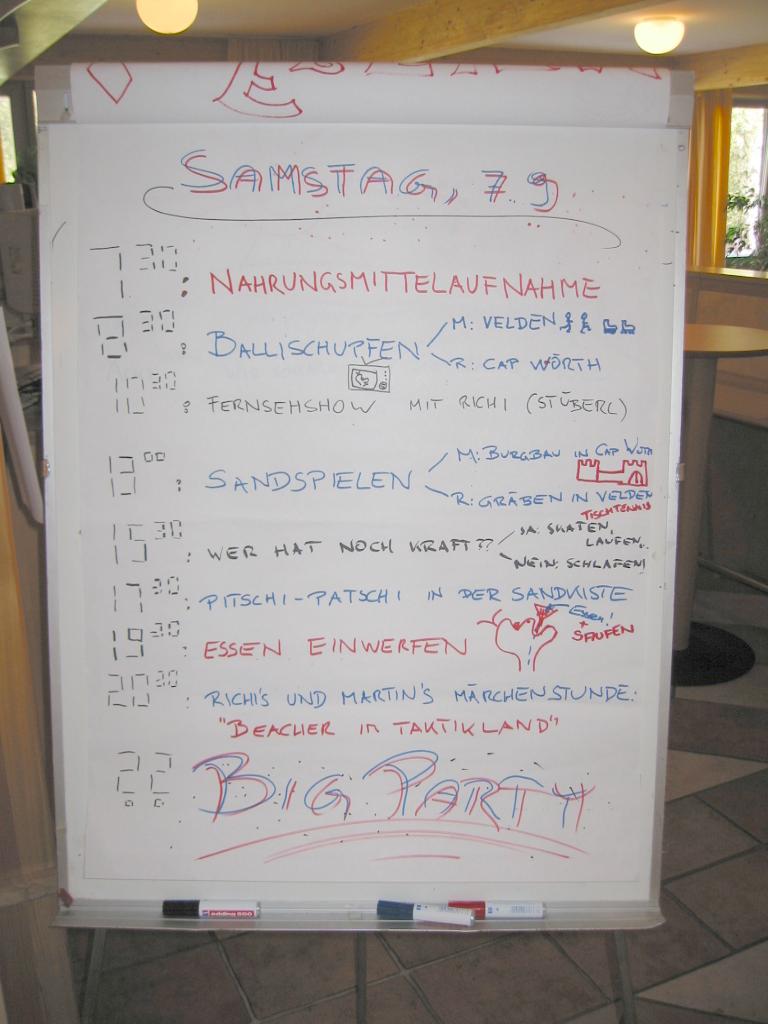 SAMSTAG, 7 9
7 30 : NAHRUNGSMITTELAUFNAHME
8 30 : BALLISCHUPFEN
M: VELDEN
R: CAP WÖRTH
10 30 : FERNSEHSHOW MIT RICHI (STÜBERL)
13 00 : SANDSPIELEN
M: BURGBAU IN CAP WÖRTH
R: GRÄBEN IN VELDEN
TISCHTENNIS
15 30 : WER HAT NOCH KRAFT??
JA: SKATEN,
LAUFEN..
NEIN: SCHLAFEN!
17 30 : PITSCHI-PATSCHI IN DER SANDKISTE
19 30 : ESSEN EINWERFEN
ESSEN!
+ SAUFEN
20 30 : RICHI'S UND MARTIN'S MÄRCHENSTUNDE:
"BEACHER IM TAKTIKLAND"
22 BIG PARTY
edding 500